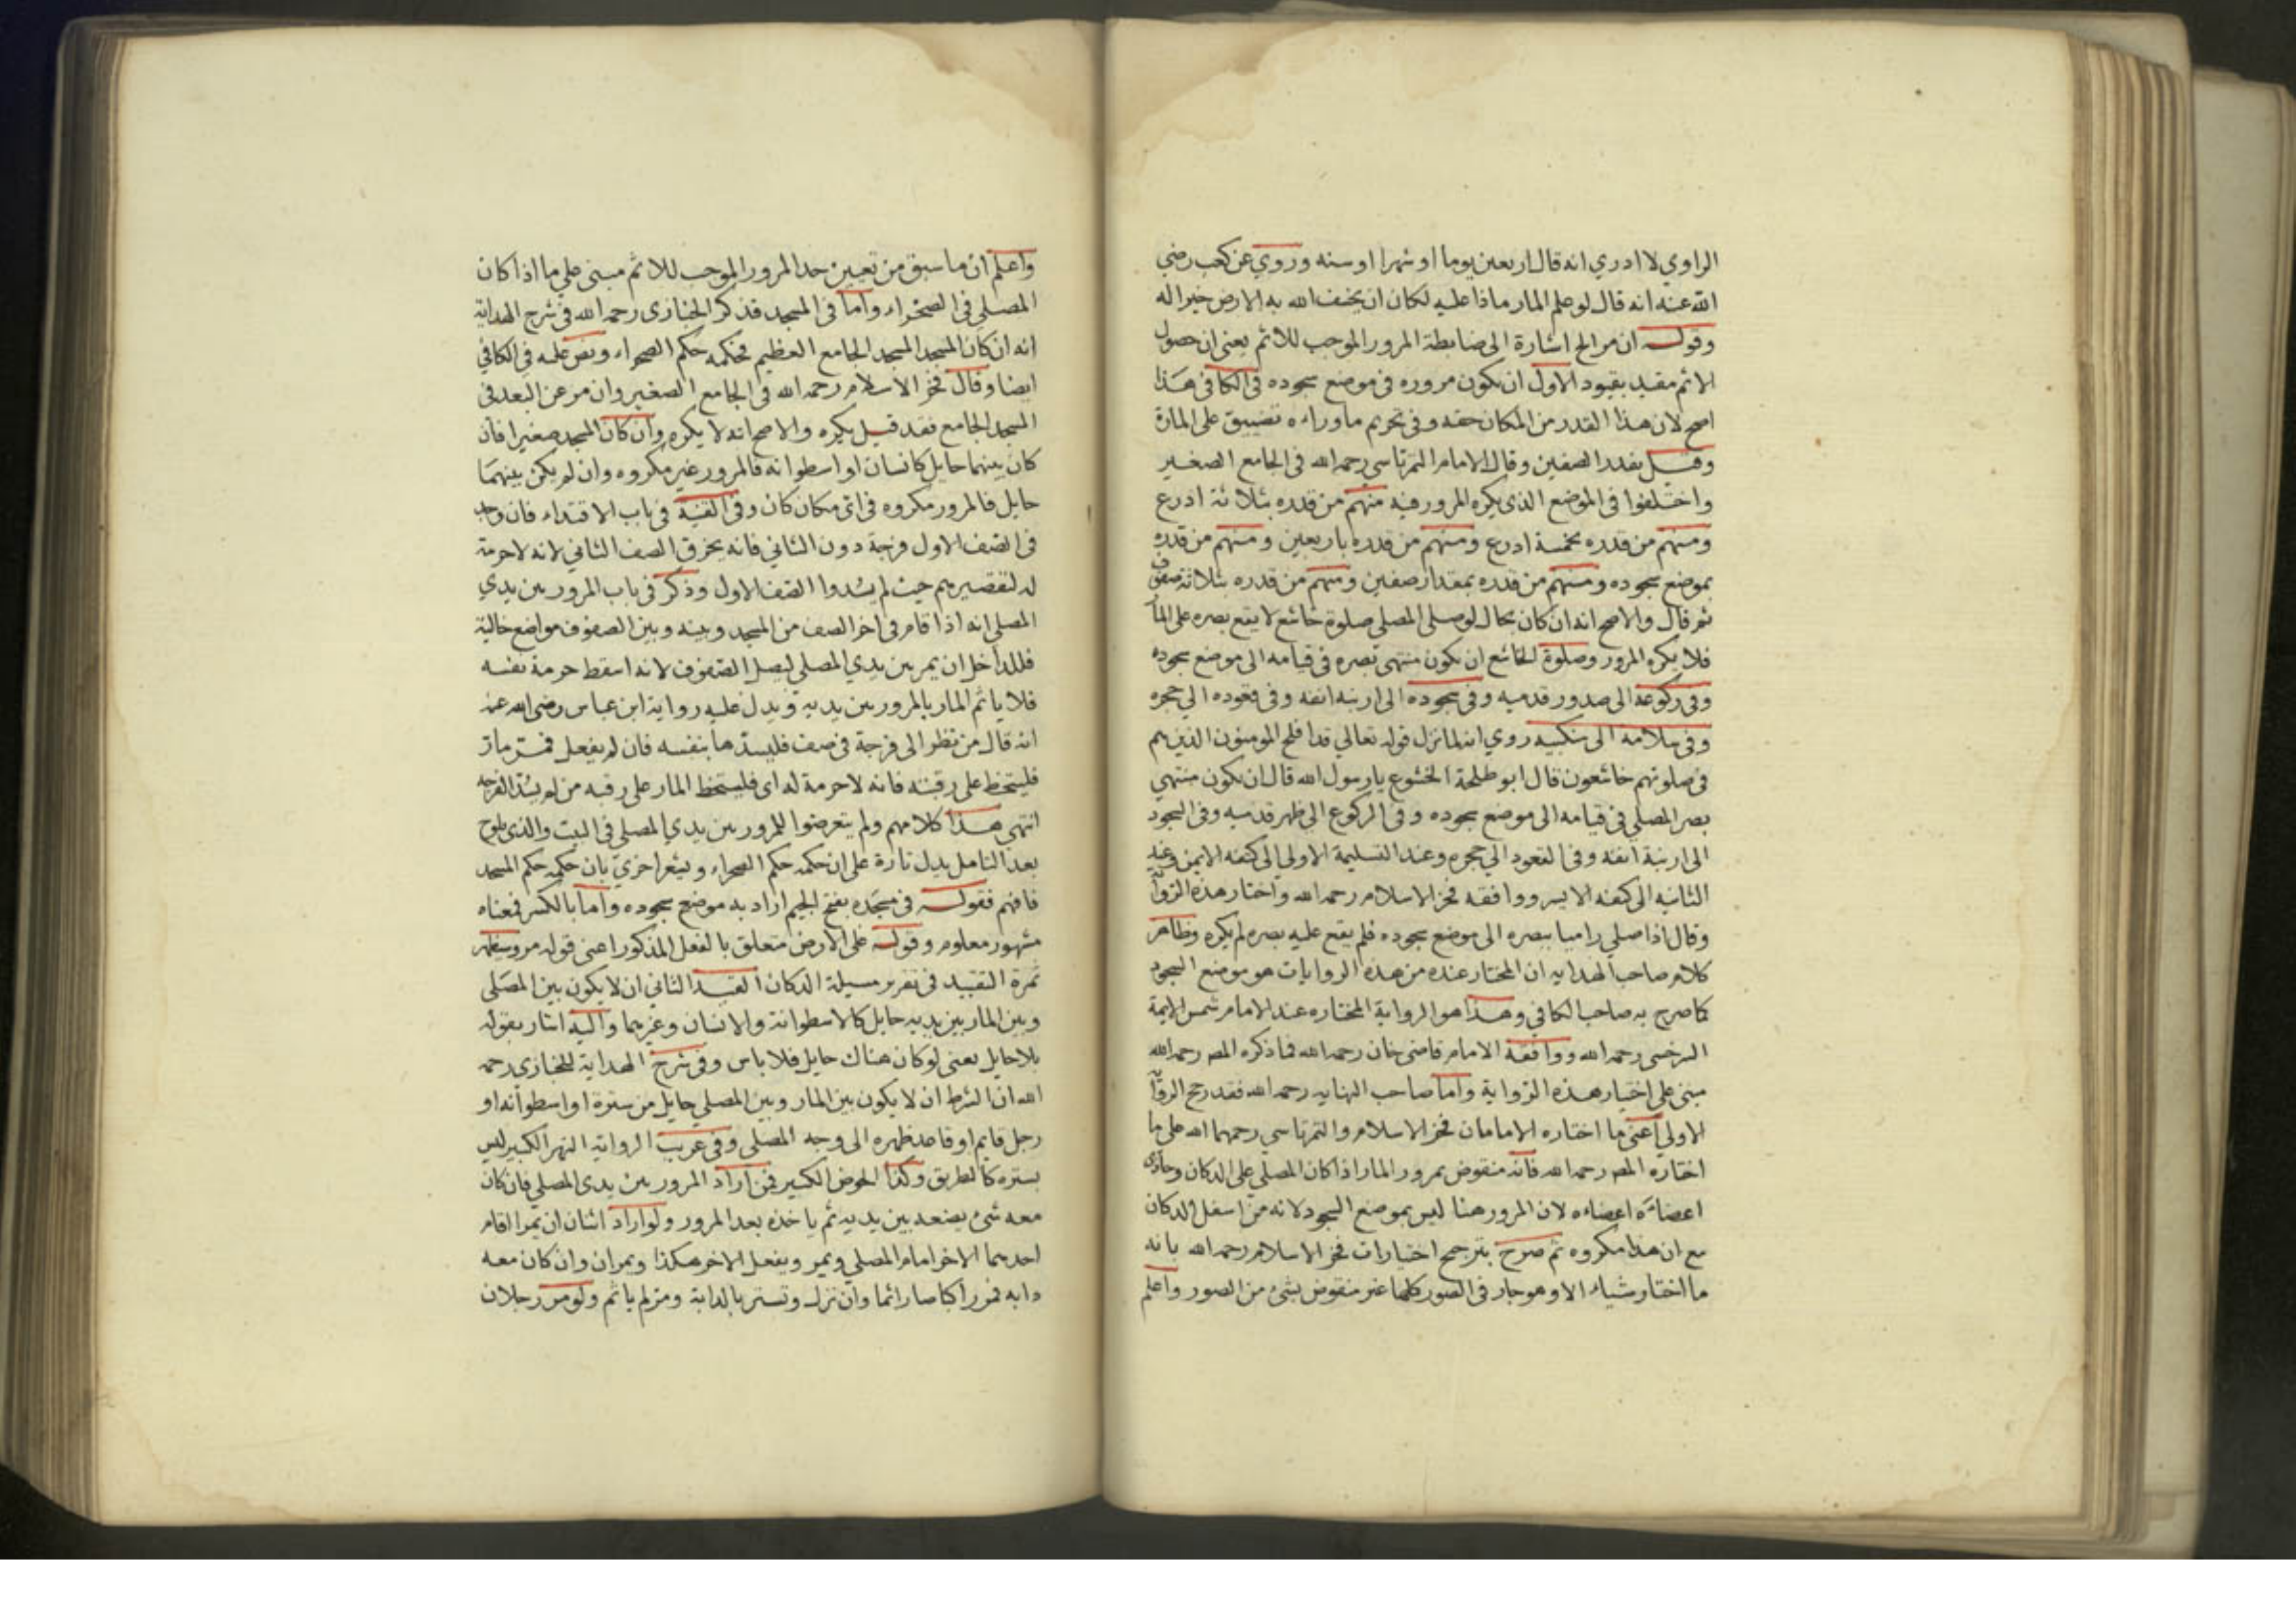 الراوي لا ادري انه قال اربعين يوما او شهرا او سنه وروي عن كعب رضي
الله عنه انه قال لو علم المار ماذا عليه لكان ان يخسف الله به الارض خيرا له
وقوله ان مر الخ اشارة الى ضابطة المرور الموجب للاثم يعني ان حصول
الاثم مقيد بقيود الاول ان يكون مروره في موضع سجوده في الكافي هذا
اصح لان هذا القدر من المكان حقه وفي تحريم ما وراءه تضييق على المارة
وقيل بقدر الصفين وقال الامام التمرتاسي رحمه الله في الجامع الصغير
واختلفوا في الموضع الذي يكره المرور فيه منهم من قدره بثلاثة ادرع
ومنهم من قدره بخمسة ادرع ومنهم من قدره باربعين ومنهم من قدره
بموضع سجوده ومنهم من قدره بمقدار صفين ومنهم من قدره بثلاثة صفوف
ثم قال والاصح انه ان كان بحال لو صلى المصلي صلوة خاشع لا يقع بصره على المار
فلا يكره المرور وصلوة الخاشع ان يكون منتهى بصره في قيامه الى موضع سجوده
وفي ركوعه الى صدور قدميه وفي سجوده الى ارنبة انفه وفي قعوده الى حجره
وفي سلامه الى منكبيه روي انه لما نزل قوله تعالى قد افلح المومنون الذين هم
في صلوتهم خاشعون قال ابو طلحة الخشوع يا رسول الله قال ان يكون منتهي
بصر المصلي في قيامه الى موضع سجوده وفي الركوع الى ظهر قدميه وفي السجود
الى ارنبة انفه وفي القعود الى حجره وعند التسليمة الاولي الى كتفه الايمن وعند
الثانيه الى كتفه الايسر ووافقه فخر الاسلام رحمه الله واختار هذه الروا
وقال اذا صلي راميا ببصره الى موضع سجوده فلم يقع عليه بصره لم يكره وظاهر
كلام صاحب الهدايه ان المختار عنده من هذه الروايات هو موضع السجود
كما صرح به صاحب الكافي وهذا هو الرواية المختاره عند الامام شمس الايمة
السرخسي رحمه الله ووافقه الامام قاضي خان رحمه الله فما ذكره المص رحمه الله
مبني على اختيار هذه الرواية واما صاحب النهايه رحمه الله فقد رجح الروا
الاولي اعني ما اختاره الامامان فخر الاسلام والتمرتاسي رحمهما الله على ما
اختاره المص رحمه الله فانه منقوض بمرور المار اذا كان المصلي على الدكان وحاذى
اعضاءه اعضاءه لان المرور هنا ليس بموضع السجود لانه من اسفل الدكان
مع ان هذا مكروه ثم صرح بترجيح اختيارات فخر الاسلام رحمه الله بانه
ما اختار شياء الا وهو جار في الصور كلها غير منقوض بشئ من الصور واعلم
واعلم ان ما سبق من تعيين حد المرور الموجب للاثم مبني على ما اذا كان
المصلي في الصحراء واما في المسجد فذكر الخبازي رحمه الله في شرح الهداية
انه ان كان المسجد المسجد الجامع العظيم فحكمه حكم الصحراء ونص عليه في الكافي
ايضا وقال فخر الاسلام رحمه الله في الجامع الصغير وان مر عن البعد في
المسجد الجامع فقد قيل يكره والاصح انه لا يكره وان كان المسجد صغيرا فان
كان بينهما حايل كانسان او اسطوانه فالمرور غير مكروه وان لم يكن بينهما
حايل فالمرور مكروه في اي مكان كان وفي القنية في باب الاقتداء فان وجد
في الصف الاول فرجة دون الثاني فانه يخرق الصف الثاني لانه لا حرمة
له لتقصيرهم حيث لم يسدوا الصف الاول وذكر في باب المرور بين يدي
المصلي انه اذا قام في اخر الصف من المسجد وبينه وبين الصفوف مواضع خالية
فللداخل ان يمر بين يدي المصلي ليصل الصفوف لانه اسقط حرمة نفسه
فلا ياثم المار بالمرور بين يديه ويدل عليه رواية ابن عباس رضي الله عنه
انه قال من نظر الى فرجة في صف فليسدها بنفسه فان لم يفعل فمر مار
فليتخط على رقبته فانه لا حرمة له اي فليتخط المار على رقبه من لم يسد الفرجه
انتهى هذا كلامهم ولم يتعرضوا للمرور بين يدي المصلي في البيت والذي يلوح
بعد التامل يدل تارة على ان حكمه حكم الصحراء ويشعر اخري بان حكمه حكم المسجد
فافهم فقوله في مسجده بفتح الجيم اراد به موضع سجوده واما بالكسر فمعناه
مشهور معلوم وقوله على الارض متعلق بالفعل المذكور اعني قوله مر وسيظهر
ثمرة التقييد في تقرير مسيلة الدكان القيد الثاني ان لا يكون بين المصلى
وبين المار بين يديه حايل كالاسطوانة والانسان وغيرهما واليه اشار بقوله
بلا حايل يعني لو كان هناك حايل فلا باس وفي شرح الهداية للخبازي رحمه
الله ان الشرط ان لا يكون بين المار وبين المصلي حايل من سترة او اسطوانه او
رجل قايم او قاعد ظهره الى وجه المصلي وفي غريب الرواية النهر الكبير ليس
بستره كالطريق وكذا الحوض الكبير فمن اراد المرور بين يدي المصلي فان كان
معه شئ يضعه بين يديه ثم ياخذه بعد المرور ولو اراد اثنان ان يمرا اقام
احدهما الاخر امام المصلي ويمر ويفعل الاخر هكذا ويمران وان كان معه
دابه فمر راكبا صار اثما وان نزل وتستر بالدابة ومر لم ياثم ولو مر رجلان